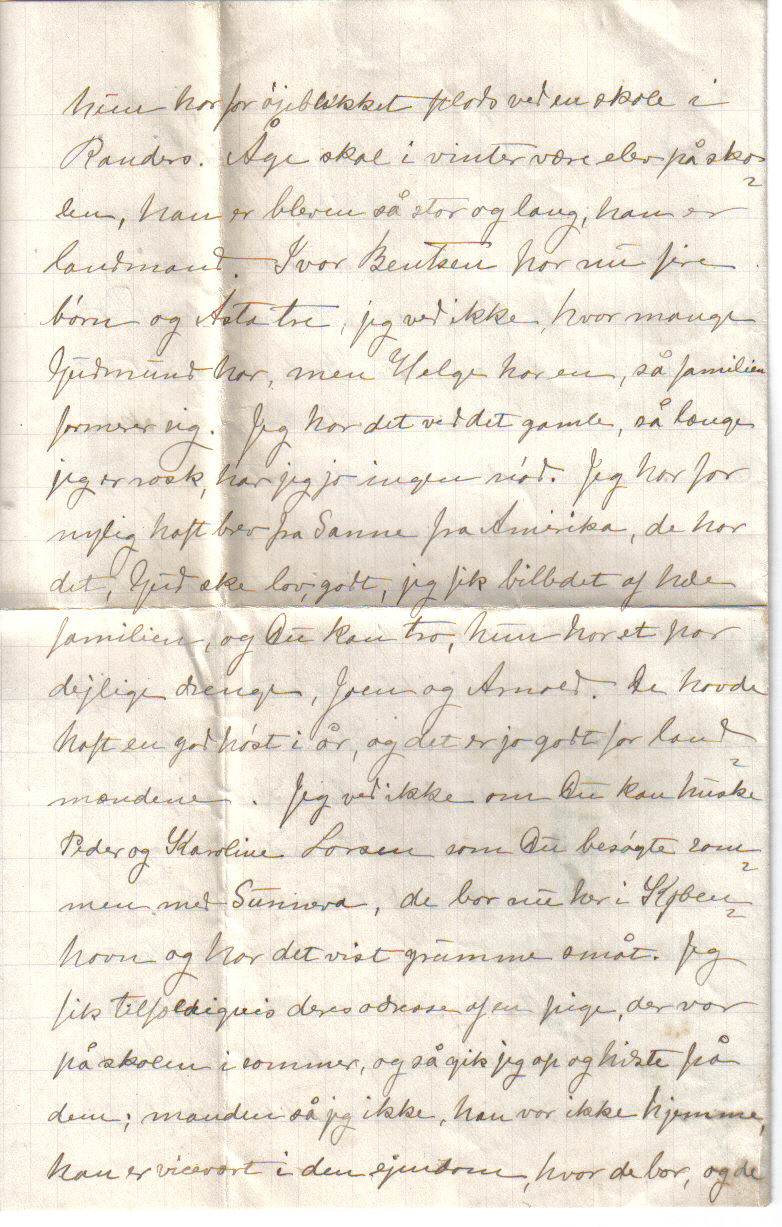 hun har for øjeblikket plads ved en skole i
Randers. Åge skal i vinter være elev på sko=
len, han er bleven så stor og lang, han er
landmand. Ivar Bentsen har nu fire
børn og Asta tre, jeg ved ikke, hvor mange
Gudmund har, men Helge har en, så familien
formerer sig. Jeg har det ved det gamle, så længe
jeg er rask, har jeg jo ingen nød. Jeg har for
nylig haft brev fra Sanne fra Amerika, de har
det, Gud ske lov, godt, jeg fik billedet af hele
familien, og Du kan tro, hun har et par
dejlige drenge, Joen og Arnold. De havde
haft en god høst i år, og det er jo godt for land=
mændene. Jeg ved ikke om Du kan huske
Peder og Karoline Larsen som Du besøgte sam=
men med Sunneva, de bor nu her i Køben=
havn og har det vist grumme småt. Jeg
fik tilfældigvis deres adresse af en pige, der var
på skolen i sommer, og så gik jeg op og hilste på
dem; manden så jeg ikke, han var ikke hjemme,
han er vicevært i den ejendom, hvor de bor, og de